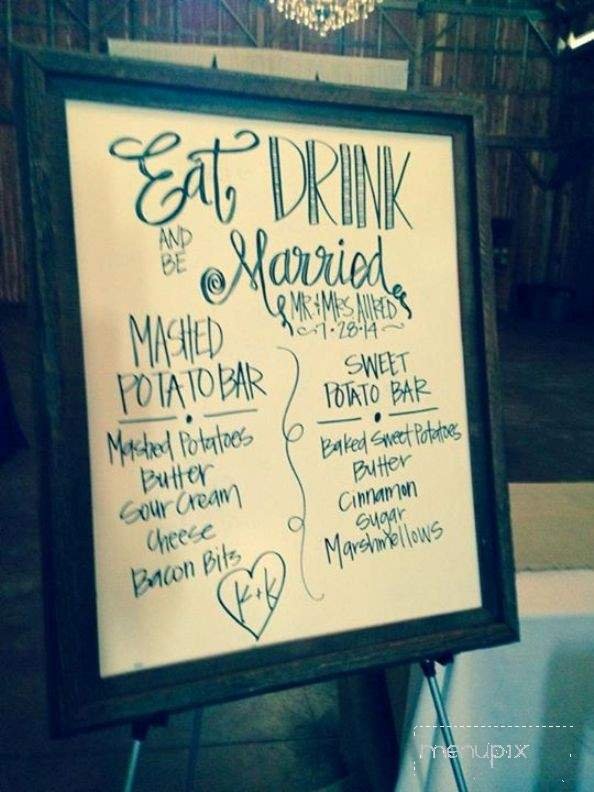 Eat DRINK
AND BE
Married
MR + MRS Allred
7·28·14
MASHED
POTATO BAR
Mashed Potatoes
Butter
Sour Cream
Cheese
Bacon Bits
K+K
SWEET
POTATO BAR
Baked Sweet Potatoes
Butter
Cinnamon
Sugar
Marshmellows
menupix